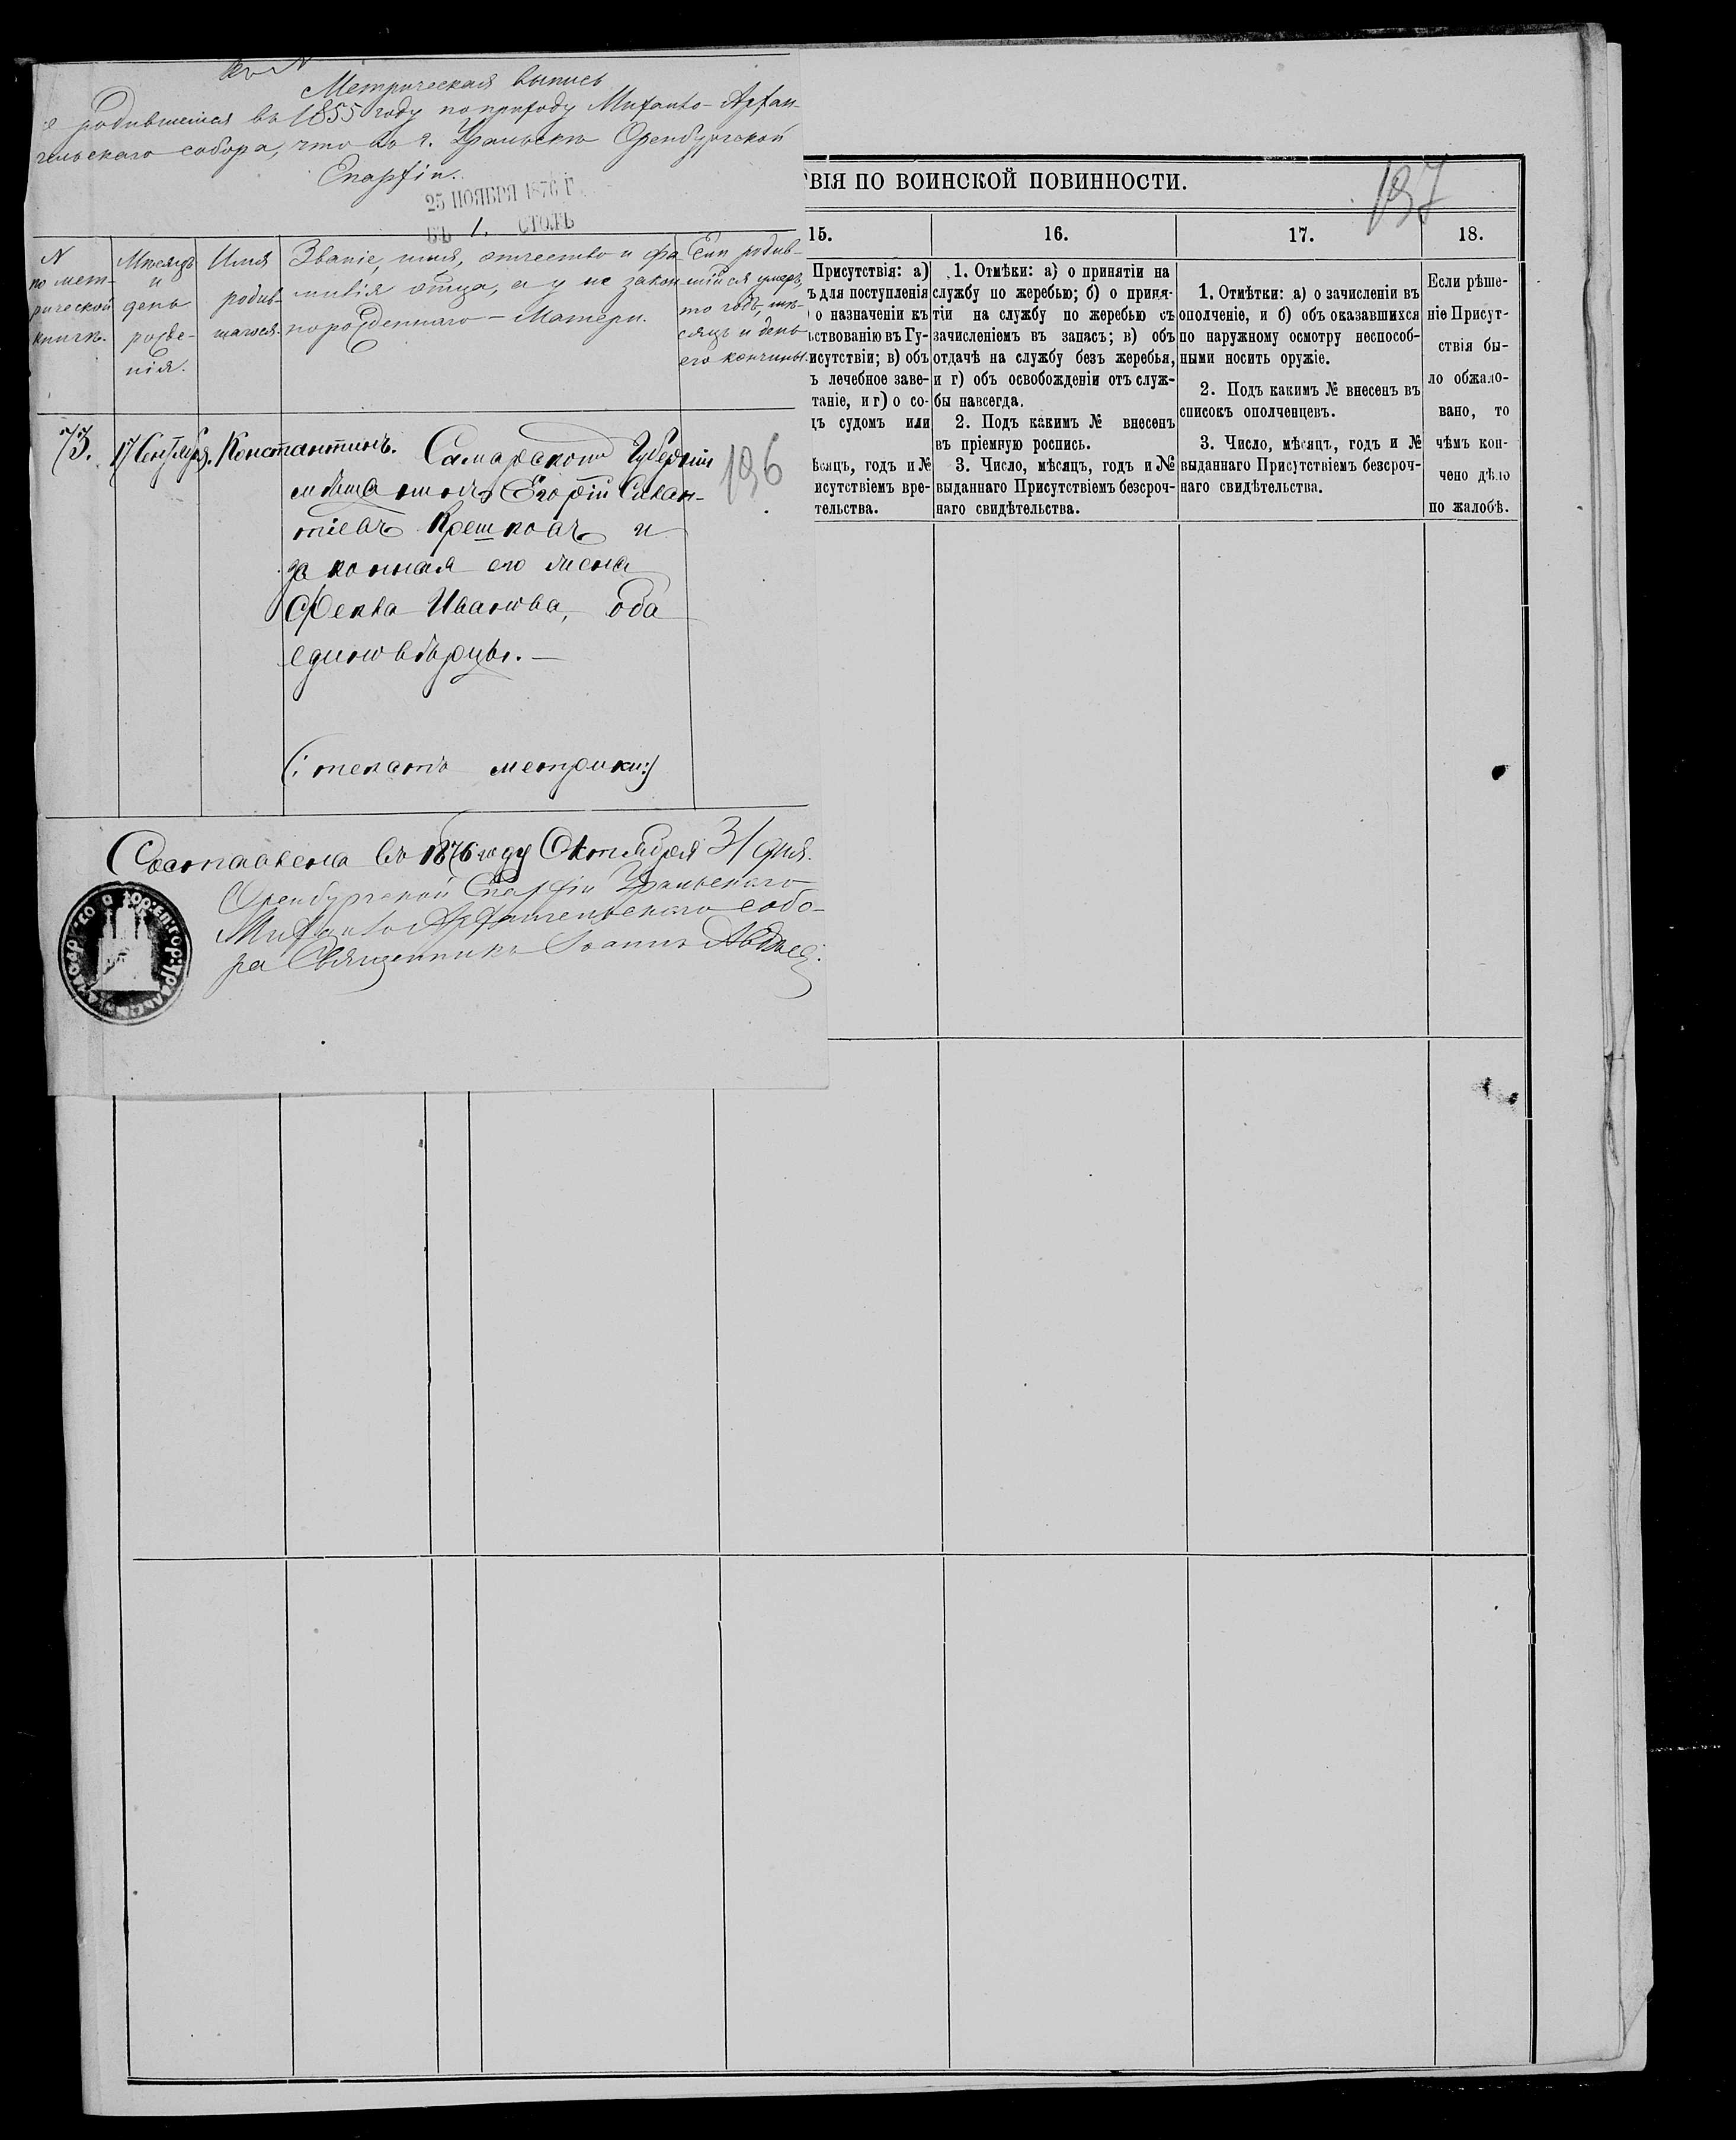 Метрическая выпись
о родившемся въ 1855 году по приходу Михаило-Архан-
гельскаго собора, что въ г. Уральскѣ Оренбургской
Епархіи.
25 НОЯБРЯ 1876 Г.
1. СТОЛЪ
N
по мет-
рической
книгѣ.
Мѣсяцъ
и
день
рожде-
нія.
Имя
родив-
шагося.
Званіе, имя, отчество и фа-
милія отца, а у не закон-
порожденнаго – Матери.
Если родив-
шійся умеръ,
то годъ, мѣ-
сяцъ и день
его кончины.
73.
17 Сентября.
Константинъ.
Самарской Губерніи
мѣщанинъ Егорій
тіевъ и
законная его жена
Фекла Иванова, оба
единовѣрцы. —
(: текстъ метрики:)
196
Составлена въ 1876 году Октября 31 дня.
Оренбургской Епархіи Уральскаго
Михаило Архангельскаго собо-
ра Священникъ Іоаннъ
ВІЯ ПО ВОИНСКОЙ ПОВИННОСТИ.
197
15.
16.
17.
18.
Присутствія: а)
ъ для поступленія
о назначеніи къ
ствованію въ Гу-
исутствіи; в) объ
ъ лечебное заве-
таніе, и г) о со-
цъ судомъ или
ѣсяцъ, годъ и №
исутствіемъ вре-
тельства.
1. Отмѣки: а) о принятіи на
службу по жеребью; б) о приня-
тіи на службу по жеребью съ
зачисленіемъ въ запасъ; в) объ
отдачѣ на службу безъ жеребья,
и г) объ освобожденіи отъ служ-
бы навсегда.
2. Подъ какимъ № внесенъ
въ пріемную роспись.
3. Число, мѣсяцъ, годъ и №
выданнаго Присутствіемъ безсроч-
наго свидѣтельства.
1. Отмѣтки: а) о зачисленіи въ
ополченіе, и б) объ оказавшихся
по наружному осмотру неспособ-
ными носить оружіе.
2. Подъ какимъ № внесенъ въ
списокъ ополченцевъ.
3. Число, мѣсяцъ, годъ и №
выданнаго Присутствіемъ безсроч-
наго свидѣтельства.
Если рѣше-
ніе Присут-
ствія бы-
ло обжало-
вано, то
чѣмъ кон-
чено дѣло
по жалобѣ.